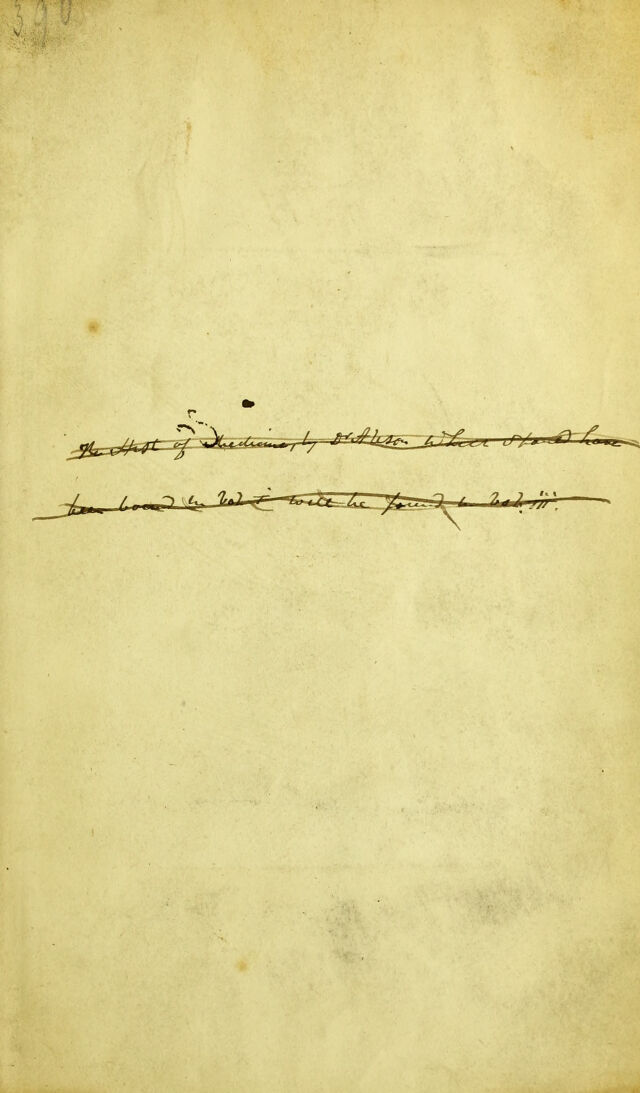 390
The Hist of Medicine, by Dr Alison which should have
been bound in Vol i will be found in Vol. iii.